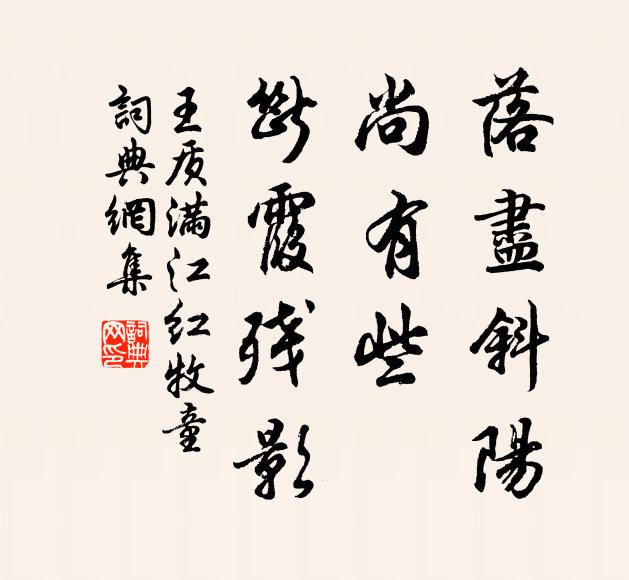 落盡斜陽
尚有些
斷霞残影
王质滿江红牧童
詞典網集
詞典网印